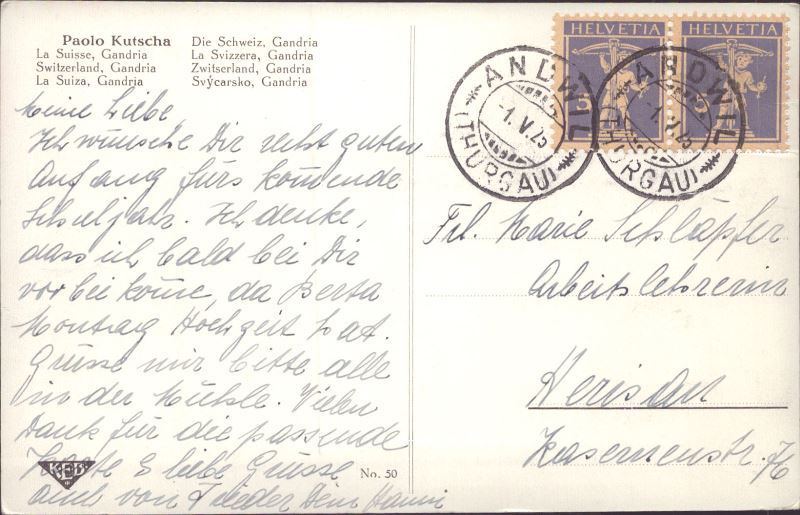 Paolo Kutscha
La Suisse, Gandria
Switzerland, Gandria
La Suiza, Gandria
Die Schweiz, Gandria
La Svizzera, Gandria
Zwitserland, Gandria
Svýcarsko, Gandria
HELVETIA HELVETIA
5 5
ANDWIL
-1.V.25
(THURGAU)
ANDWIL
-1.V.25
(THURGAU)
Meine Liebe,
Ich wünsche Dir recht guten
Anfang fürs kom̄ende
Schuljahr. Ich denke,
dass ich bald bei Dir
vorbei kom̄e, da Berta
Montag Hochzeit hat.
Grüsse mir bitte alle
in der Mühle. Vielen
Dank für die passende
Karte & liebe Grüsse
auch von Frieder Dein Hanni
Frl. Marie Schläpfer
Arbeitslehrerin
Herisau
Kasernenstr.
KEB
No. 50